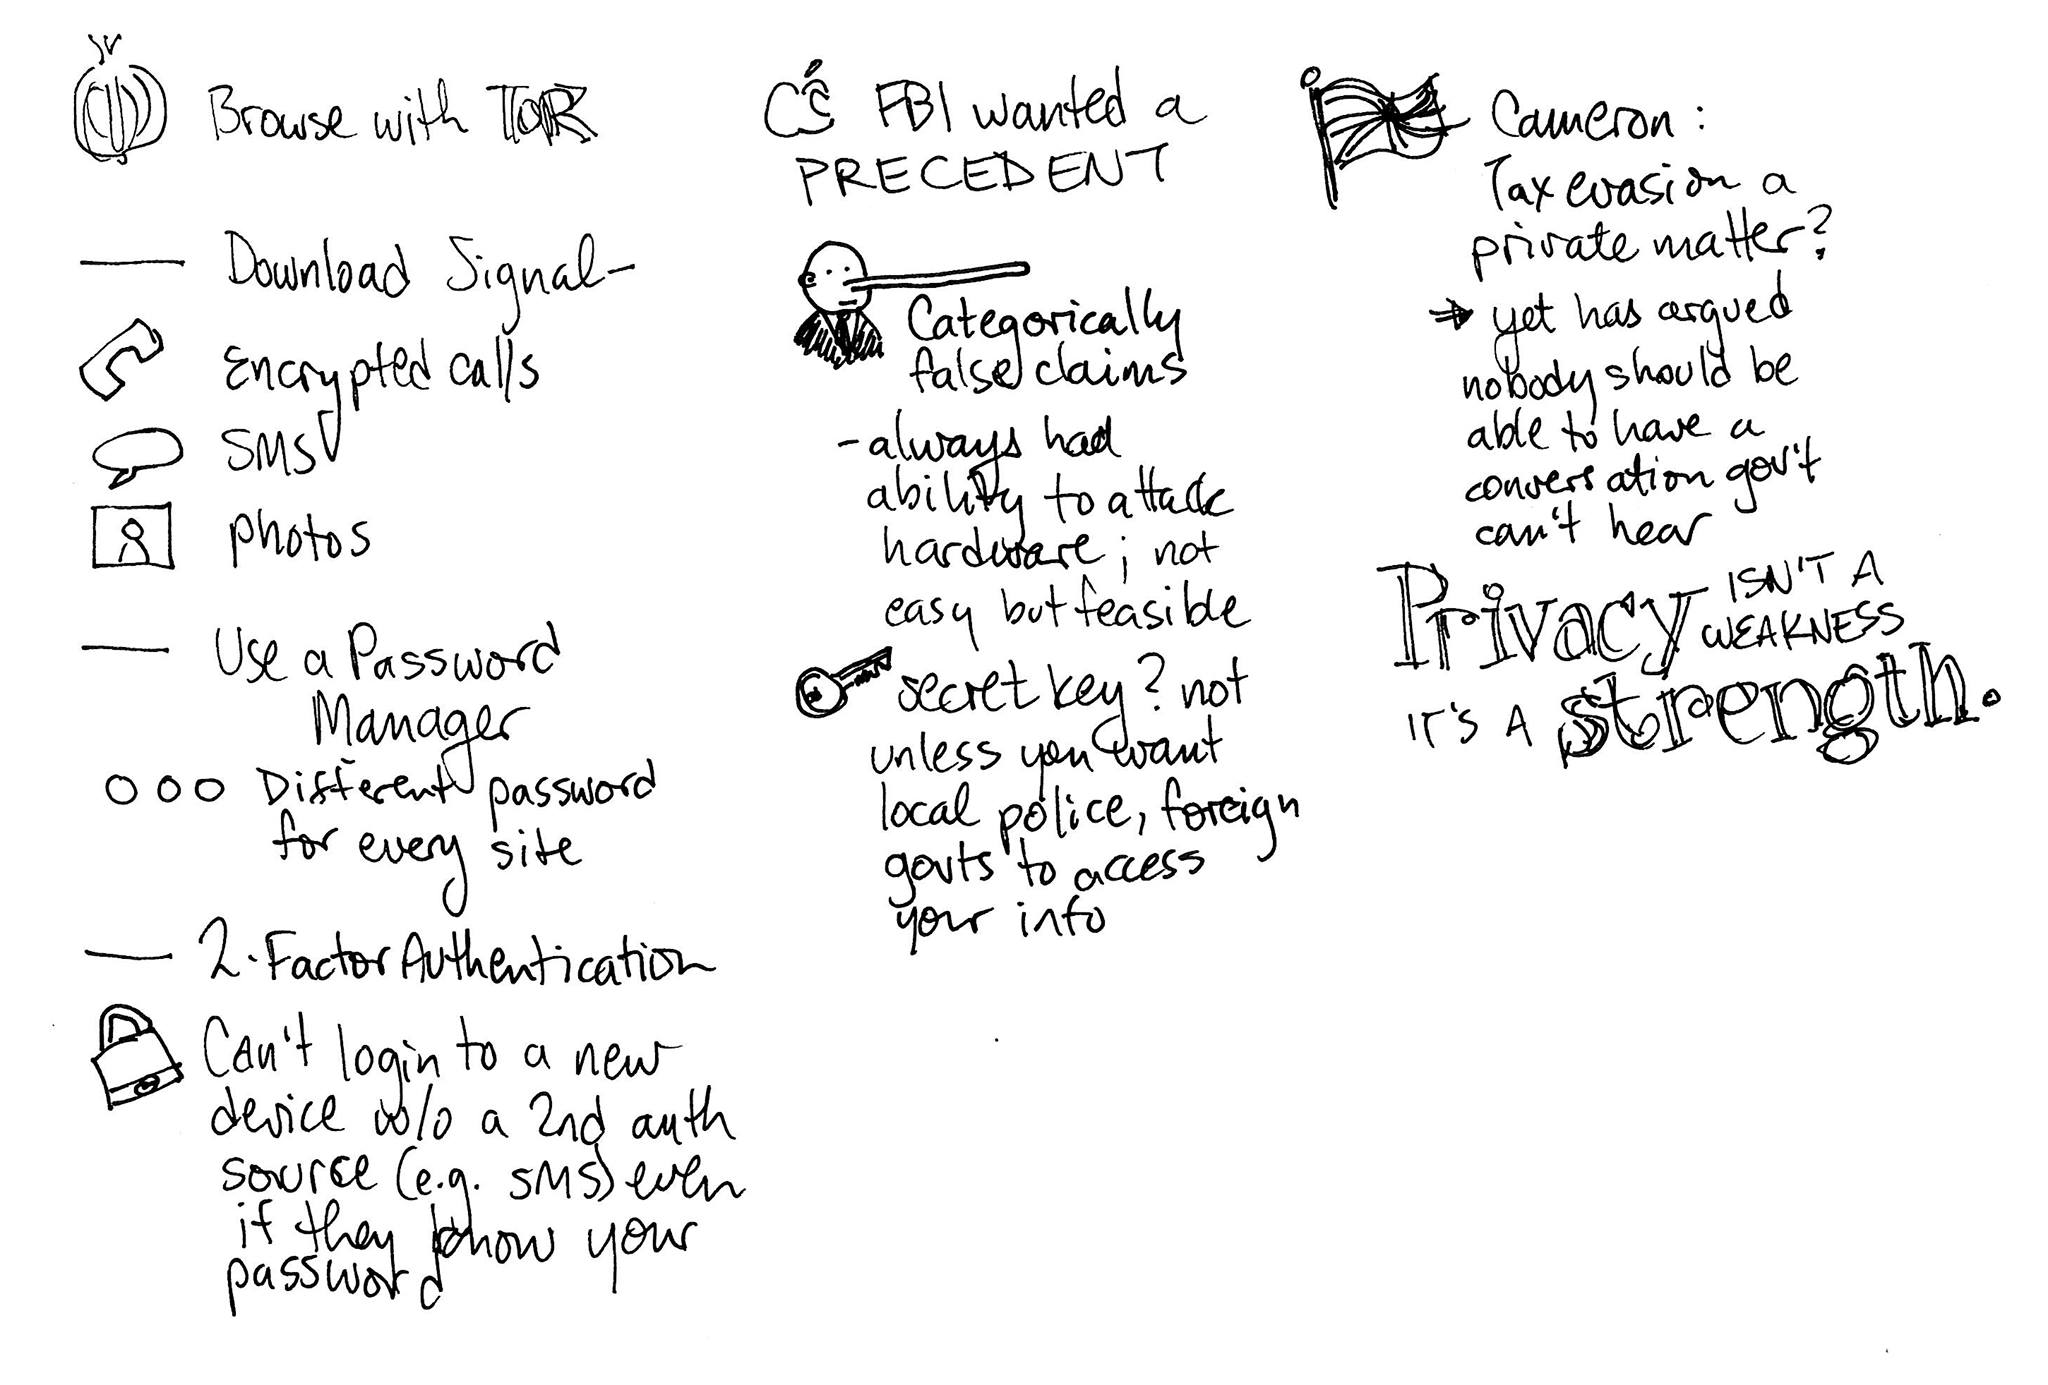 Browse with TOR
Download Signal-
Encrypted calls
SMS
photos
Use a Password
Manager
Different password
for every site
2-Factor Authentication
Can't login to a new
device w/o a 2nd auth
source (e.g. SMS) even
if they know your
password
FBI wanted a
PRECEDENT
Categorically
false claims
- always had
ability to attack
hardware; not
easy but feasible
secret key? not
unless you want
local police, foreign
gov'ts to access
your info
Cameron:
Tax evasion a
private matter?
⇒ yet has argued
nobody should be
able to have a
conversation gov't
can't hear
Privacy ISN'T A
WEAKNESS
IT'S A strength.